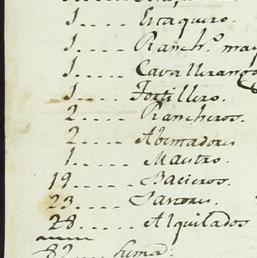 1..... Escaquero.
1.... Ranch.º may
1.... Cavallerango
1.... Fortillero.
2.... Rancheros.
2.... Ahinadores
1.... Maestro.
19.... Bacieros.
23.... Pastores.
28.... Alquilados
82... Suma.